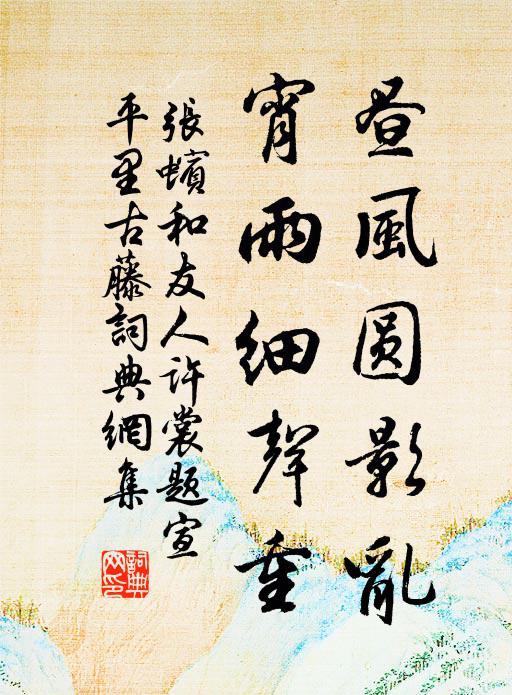 昼風圓影亂
宵雨細聲重
張蠙和友人許裳題宣
平里古藤詞典網集
詞典網印